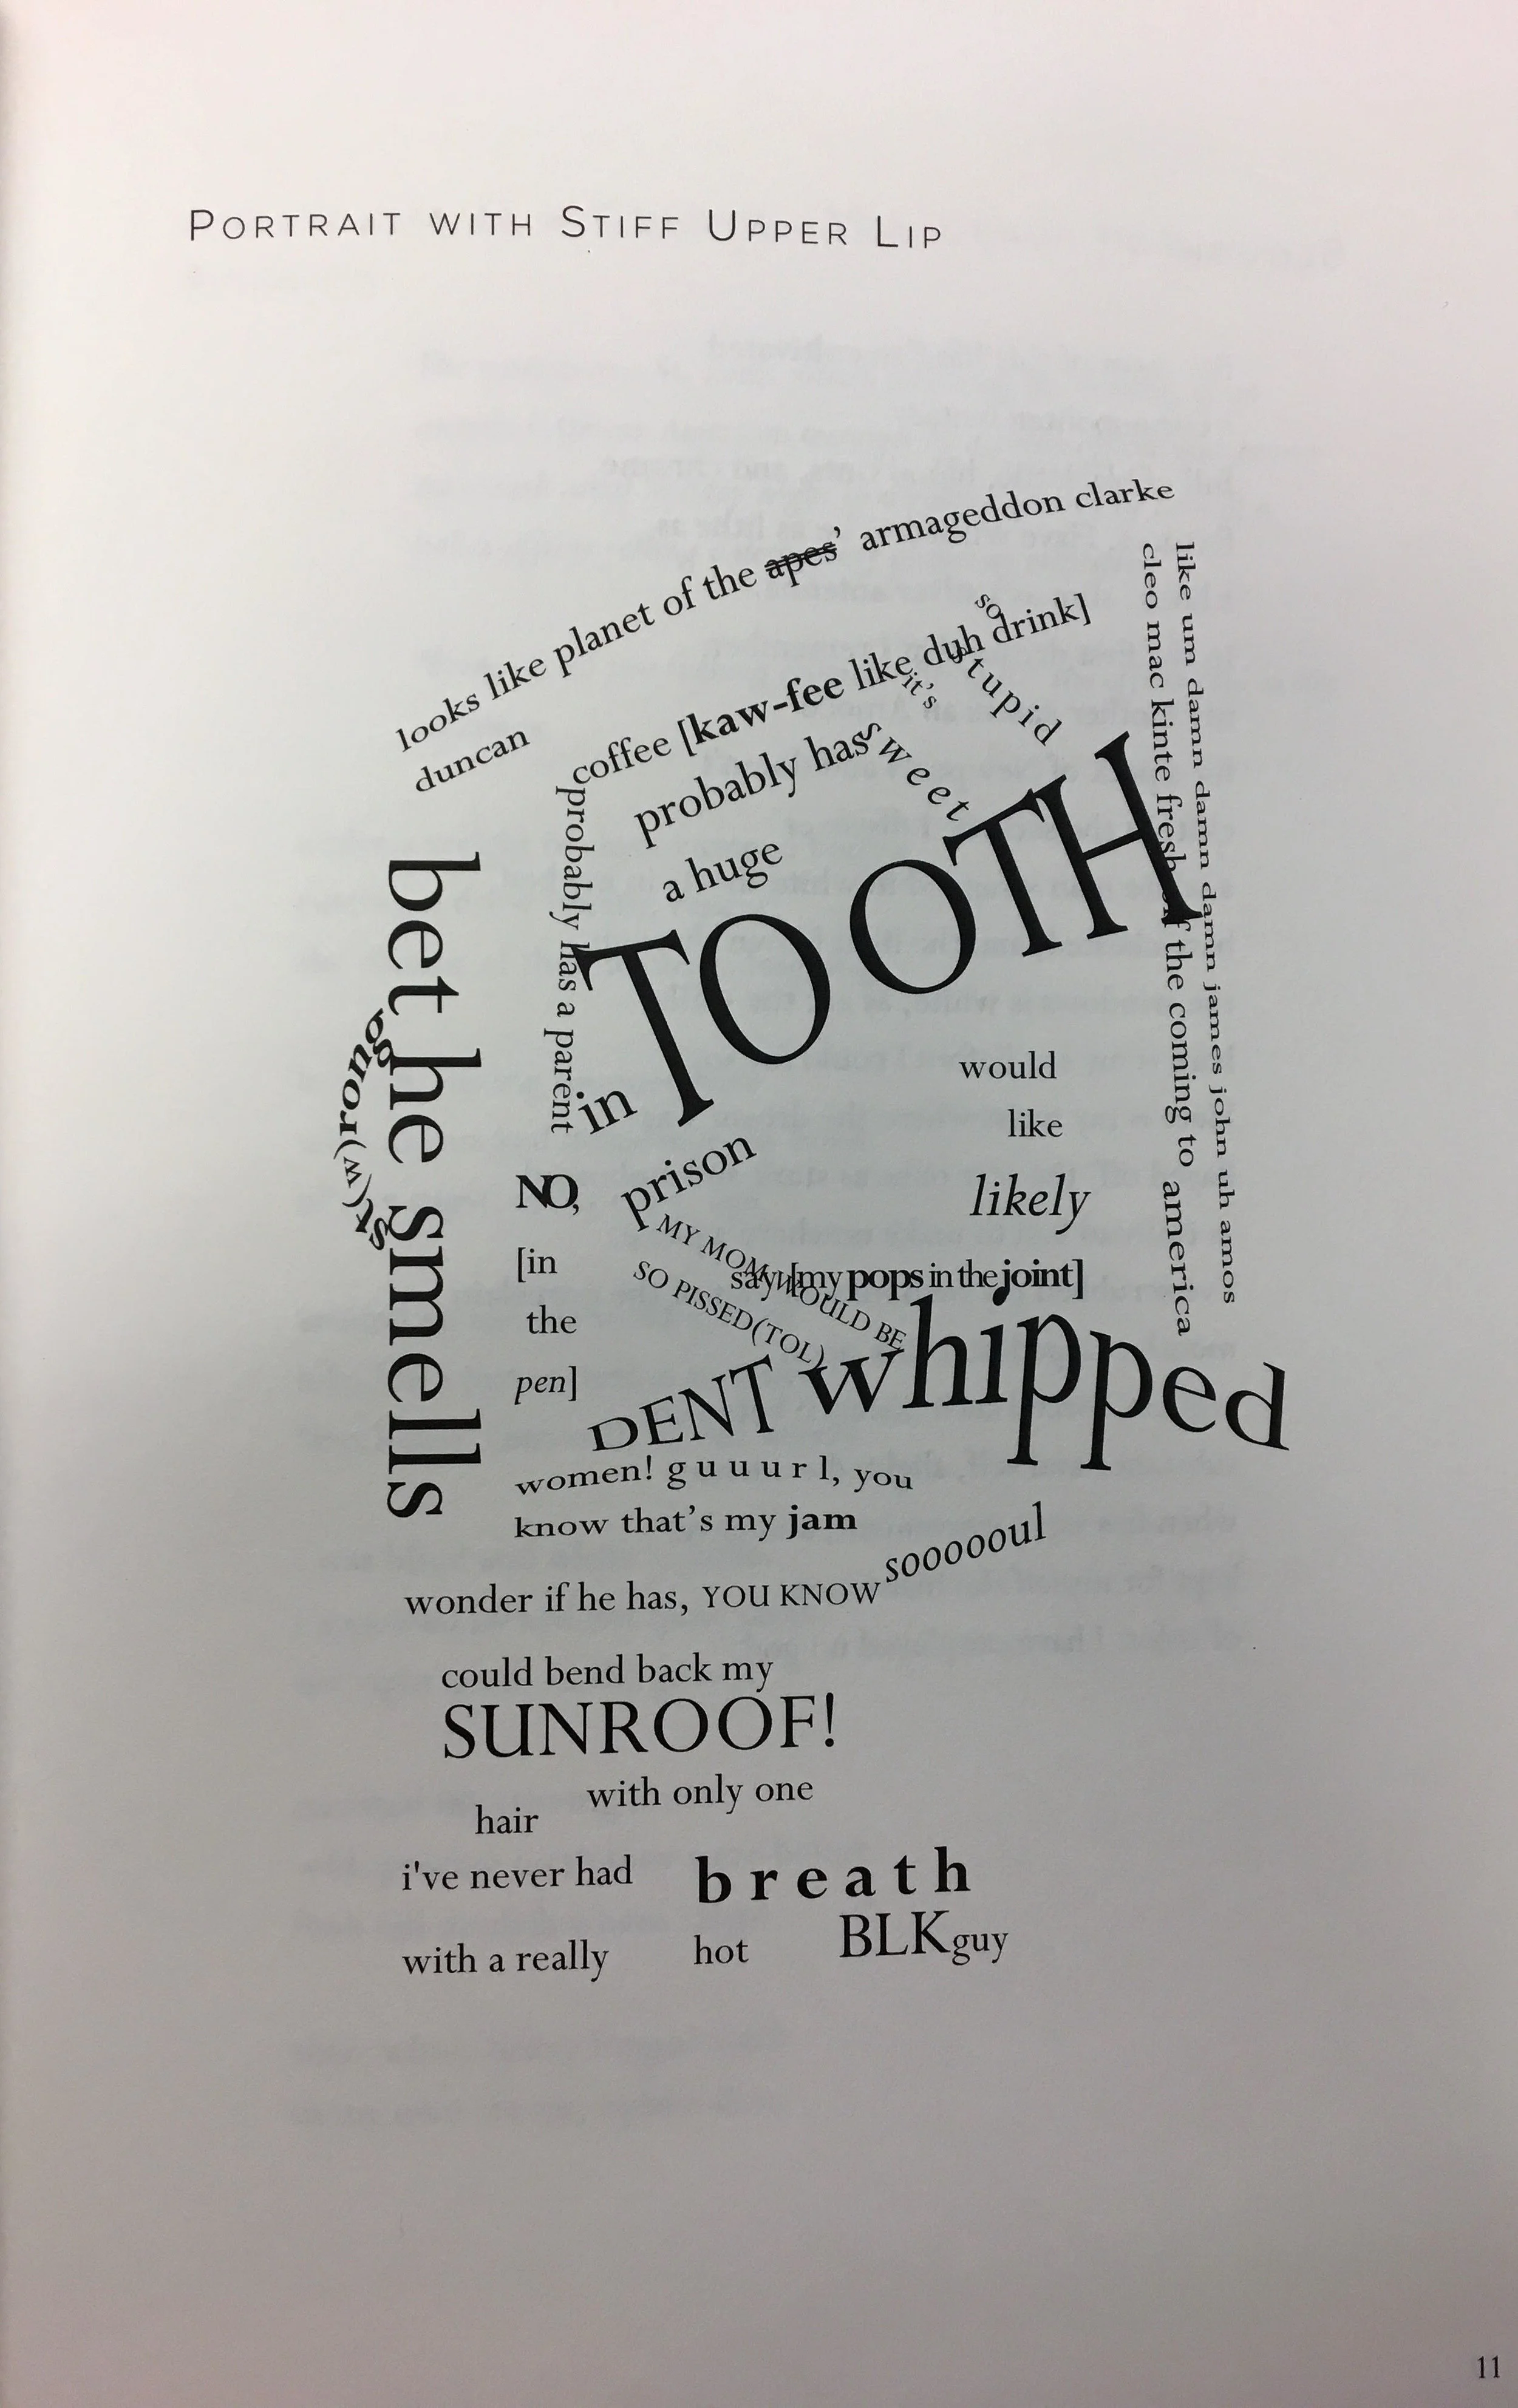 PORTRAIT WITH STIFF UPPER LIP
looks like planet of the apes' armageddon clarke
duncan
coffee [kaw-fee like duh drink]
so
it's
stupid
probably has
sweet
a huge
TOOTH
probably has a parent
in
prison
like um damn damn damn damn james john uh amos
cleo mac kinte fresh off the coming to america
bet he smells
st(w)rong
would
like
likely
NO,
[in
the
pen]
MY MOM WOULD BE
SO PISSED(TOL)
say [my pops in the joint]
DENT whipped
women! g u u u r l, you
know that's my jam
wonder if he has, YOU KNOW soooooul
could bend back my
SUNROOF!
with only one
hair
i've never had breath
with a really hot BLKguy
11